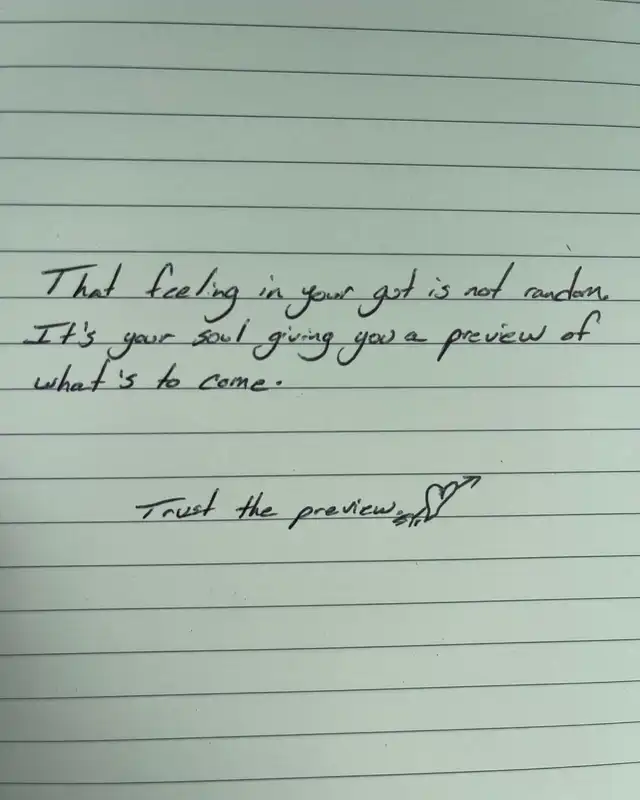 That feeling in your gut is not random.
It's your soul giving you a preview of
what's to come.
Trust the preview.